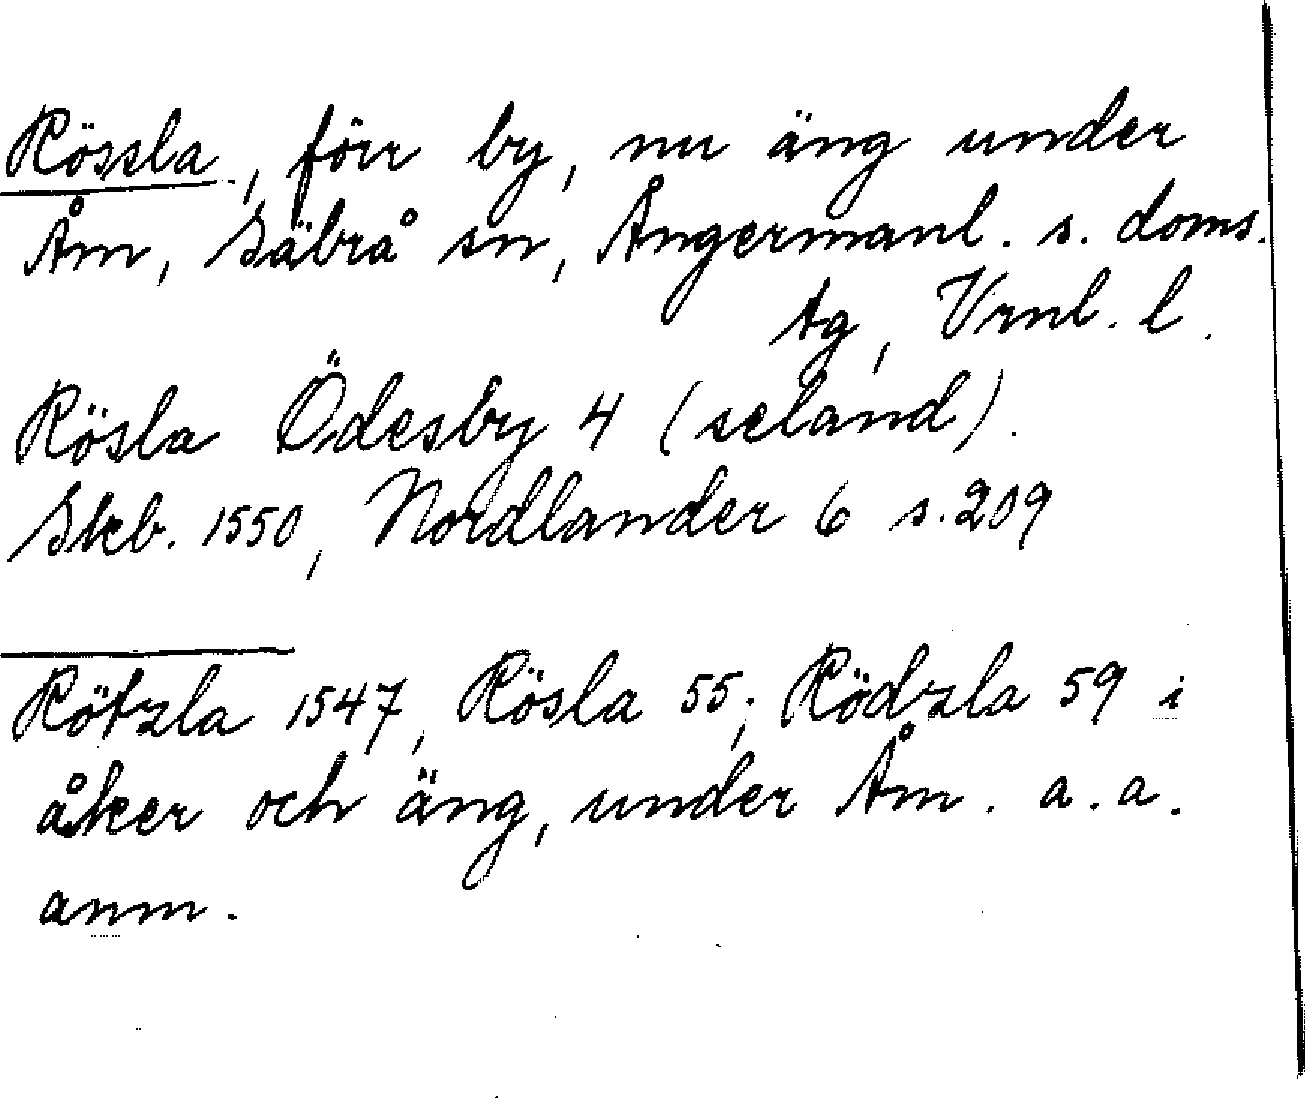 Rössla, förr by, nu äng under
Åm, Säbrå sn, Ångermanl. s. doms.
tg, Vrnl. l.
Rösla Ödesby 4 (seland).
Skb. 1550, Nordlander 6 s. 209
Rötzla 1547, Rösla 55; Rödzla 59 i
åker och äng, under Åm. a. a.
anm.